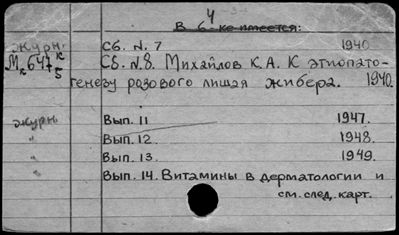 4
В б-ке имеется:
журн. Сб. N. 7 1940
М 647 к/5 Сб. N. 8. Михайлов К. А. К этиопато-
генезу розового лишая жибера. 1940.
журн Вып. 11 1947.
" Вып. 12. 1948.
" Вып. 13. 1949.
" Вып. 14. Витамины в дерматологии и
см. след. карт.